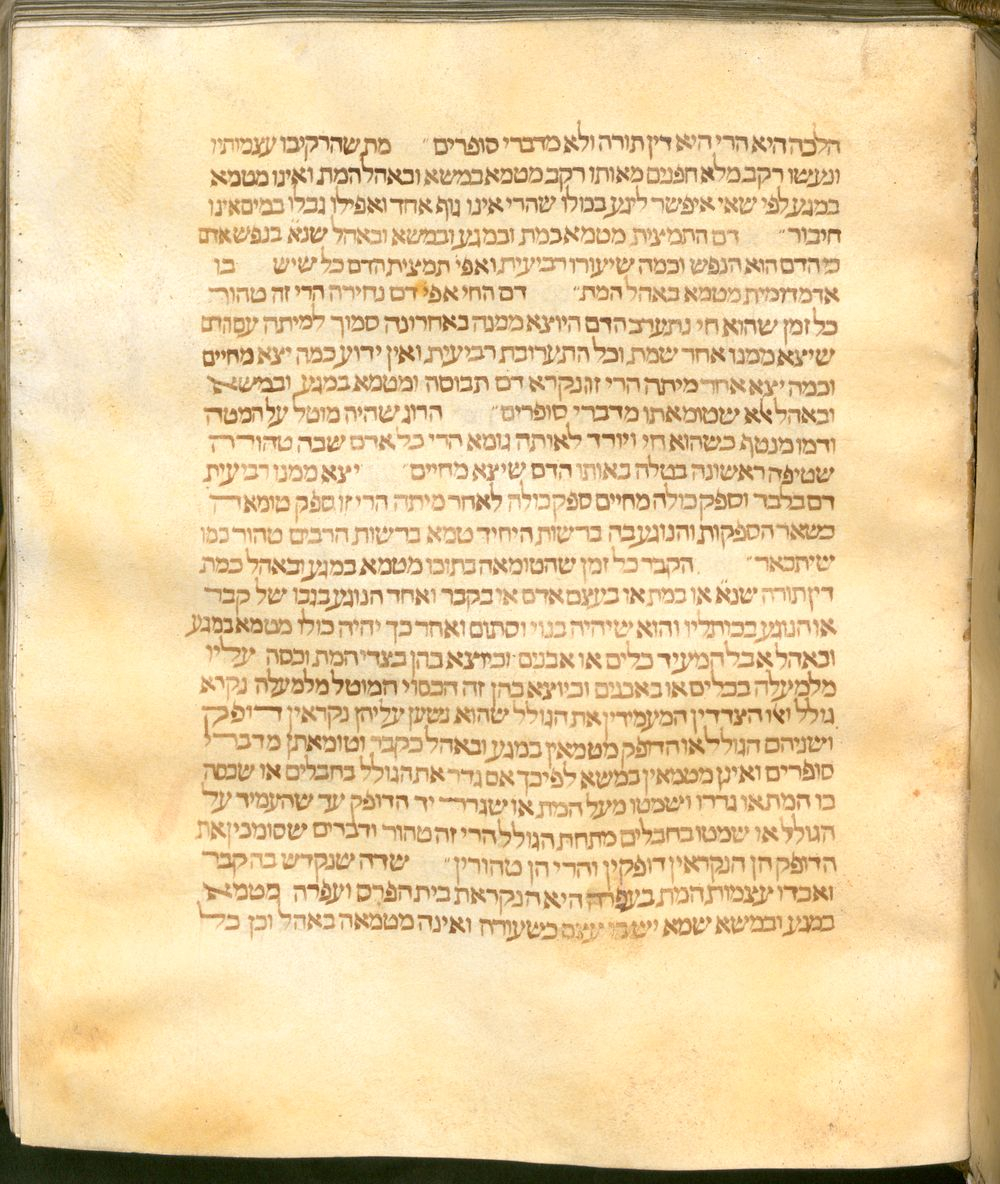 הלכה היא הרי היא דין תורה ולא מדברי סופרים״ מת שהרקיבו עצמותיו
ונעשו רקב מלא חפנים מאותו רקב מטמא במשא ובאהל המת ואינו מטמא
במגע לפי שאי איפשר ליגע בכולו שהרי אינו גוף אחד ואפילו גבלו במים אינו
חיבור״ דם התמצית מטמא כמת ובמגע ובמשא ובאהל שנא׳ בנפש אדם
כי הדם הוא הנפש וכמה שיעורו רביעית ואפי׳ תמצית הדם כל שיש בו
אדמדומית מטמא באהל המת״ דם החי אפי׳ דם נחירה הרי זה טהור
כל זמן שהוא חי נתערב הדם היוצא ממנה באחרונה סמוך למיתה עם הדם
שיצא ממנו אחר שמת וכל התערובת רביעית ואין ידוע כמה יצא מחיים
וכמה יצא אחר מיתה הרי זו נקרא דם תבוסה ומטמא במגע ובמשא
ובאהל אלא שטומאתו מדברי סופרים״ הרוג שהיה מוטל על המטה
ודמו מנטף כשהוא חי ויורד לאותה גומא הרי כל אדם שבה טהורה
שטיפה ראשונה בטלה באותו הדם שיצא מחיים״ יצא ממנו רביעית
דם בלבד וספק כולה מחיים ספק כולה לאחר מיתה הרי זו ספק טומאה
כשאר הספקות והנוגע בה ברשות היחיד טמא ברשות הרבים טהור כמו
שיתבאר״ הקבר כל זמן שהטומאה בתוכו מטמא במגע ובאהל כמת
דין תורה שנא׳ או במת או בעצם אדם או בקבר ואחד הנוגע בגבו של קבר
או הנוגע בכותליו והוא שיהיה בנוי וסתום ואחר כך יהיה כולו מטמא במגע
ובאהל אבל המעיד כלים או אבנים וכיוצא בהן בצדי המת וכסה עליו
מלמעלה בכלים או באבנים וכיוצא בהן זה הכסוי המוטל מלמעלה נקרא
גולל ואלו הצדדין המעמידין את הגולל שהוא נשען עליהן נקראין דופק
ושניהם הגולל או הדופק מטמאין במגע ובאהל כקבר וטומאתן מדברי
סופרים ואינן מטמאין במשא לפיכך אם גדר את הגולל בחבלים או שכסה
בו המת או גררו ושמטו מעל המת או שגרר יד הדופק עד שהעמיד על
הגולל או שמטו בחבלים מתחת הגולל הרי זה טהור ודברים שסומכין את
הדופק הן הנקראין דופקין והרי הן טהורין״ שדה שנקדש בה קבר
ואבדו עצמות המת בעפרה היא הנקראת בית הפרס ועפרה מטמא
במגע ובמשא שמא יש בו עצם כשעורה ואינה מטמאה באהל וכן כל